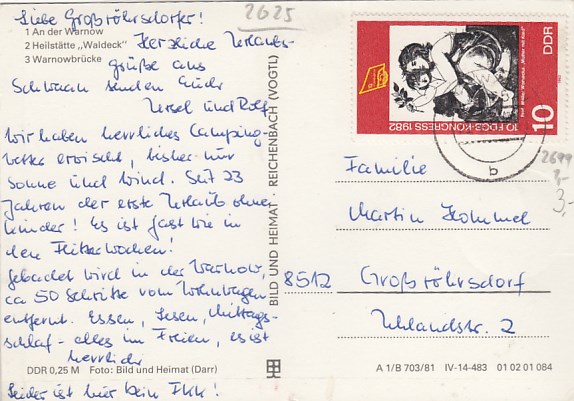 Liebe Großröhrsdorfer!
2625
1 An der Warnow
2 Heilstätte „Waldeck"
3 Warnowbrücke
Herzliche Urlaubs-
grüße aus
Schwaan senden Euch
Ursel und Rolf
Wir haben herrliches Camping-
wetter erwischt, bisher nur
Sonne und Wind. Seit 23
Jahren der erste Urlaub ohne
Kinder! Es ist fast wie in
den Flitterwochen!
Gebadet wird in der Warnow,
ca 50 Schritte vom Wohnwagen
entfernt. Essen, Lesen, Mittags-
schlaf - alles im Freien, es ist
herrlich
Leider ist hier kein FKK!
DDR 0,25 M Foto: Bild und Heimat (Darr)
BILD UND HEIMAT · REICHENBACH (VOGTL)
DDR
10
10. FDGB-KONGRESS 1982
b
2699
3,-
Familie
Martin Hommel
8512 Großröhrsdorf
Uhlandstr. 2
A 1/B 703/81 IV-14-483 01 02 01 084